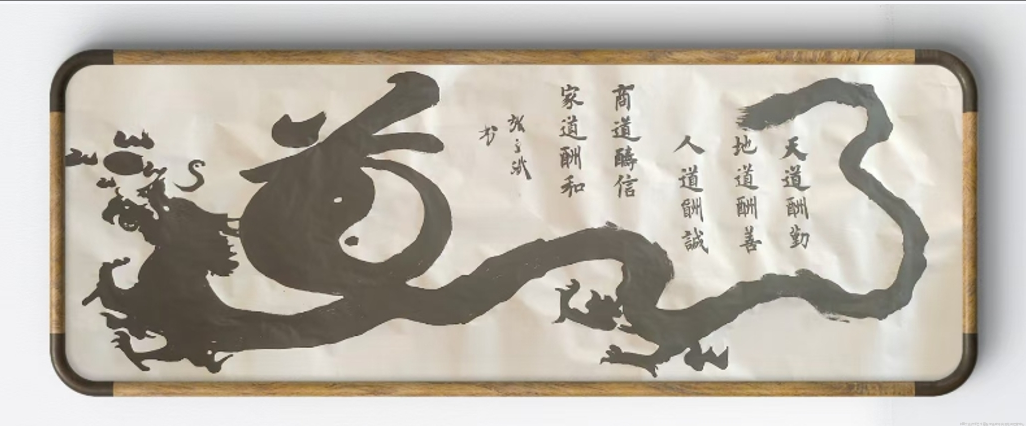 天道酬勤
地道酬善
人道酬誠
商道醻信
家道酬和
书
道